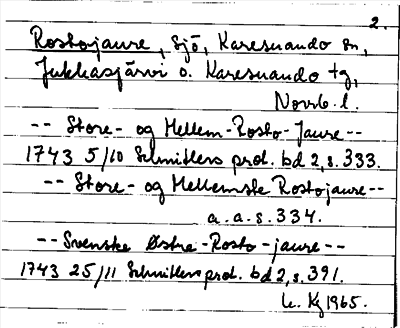 2.
Rostojaure, sjö, Karesuando sn,
Jukkasjärvi o. Karesuando tg,
Norrb. l.
-- Store- og Mellem-Rosto-Jaure--
1743 5/10 Schnitlers prot. bd 2, s. 333.
-- Store- og Mellemste Rostojaure--
a.a.s. 334.
-- Svenske Østre-Rosto-jaure--
1743 25/11 Schnitlers prot. bd 2, s. 391.
Kg 1965.